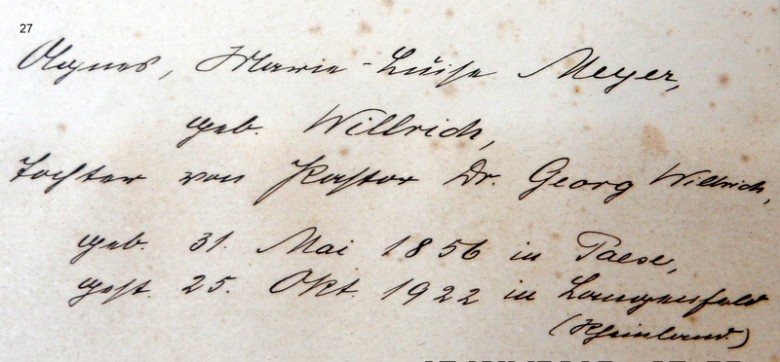 27
Agnes, Marie-Luise Meyer,
geb. Willrich,
Tochter von Pastor Dr. Georg Willrich,
geb. 31. Mai 1856 in Paese,
gest. 25. Okt. 1922 in Langenfeld
(Rheinland)